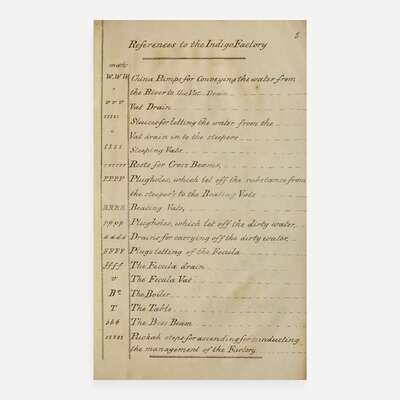 5
References to the Indigo Factory
marks
W.W.W China Pumps for Conveying the water from
the River to the Vat Drain
v v v Vat Drain
Sluices for letting the water from the
Vat drain in to the steepers
Steeping Vats
r r r r r r Rests for Cross Beams,
PPPP Plugholes, which let off the substance from
the steepers to the Beating Vats
BBBB Beating Vats,
PPPP Plugholes, which let off the dirty water,
dddd Drains for carrying off the dirty water,
FFFF Plugs letting of the Fecula
fff The Fecula drain
v The Fecula Vat
B The Boiler
T The Table
bbb The Bess Beam
Puckah steps for ascending for conducting
the management of the Factory